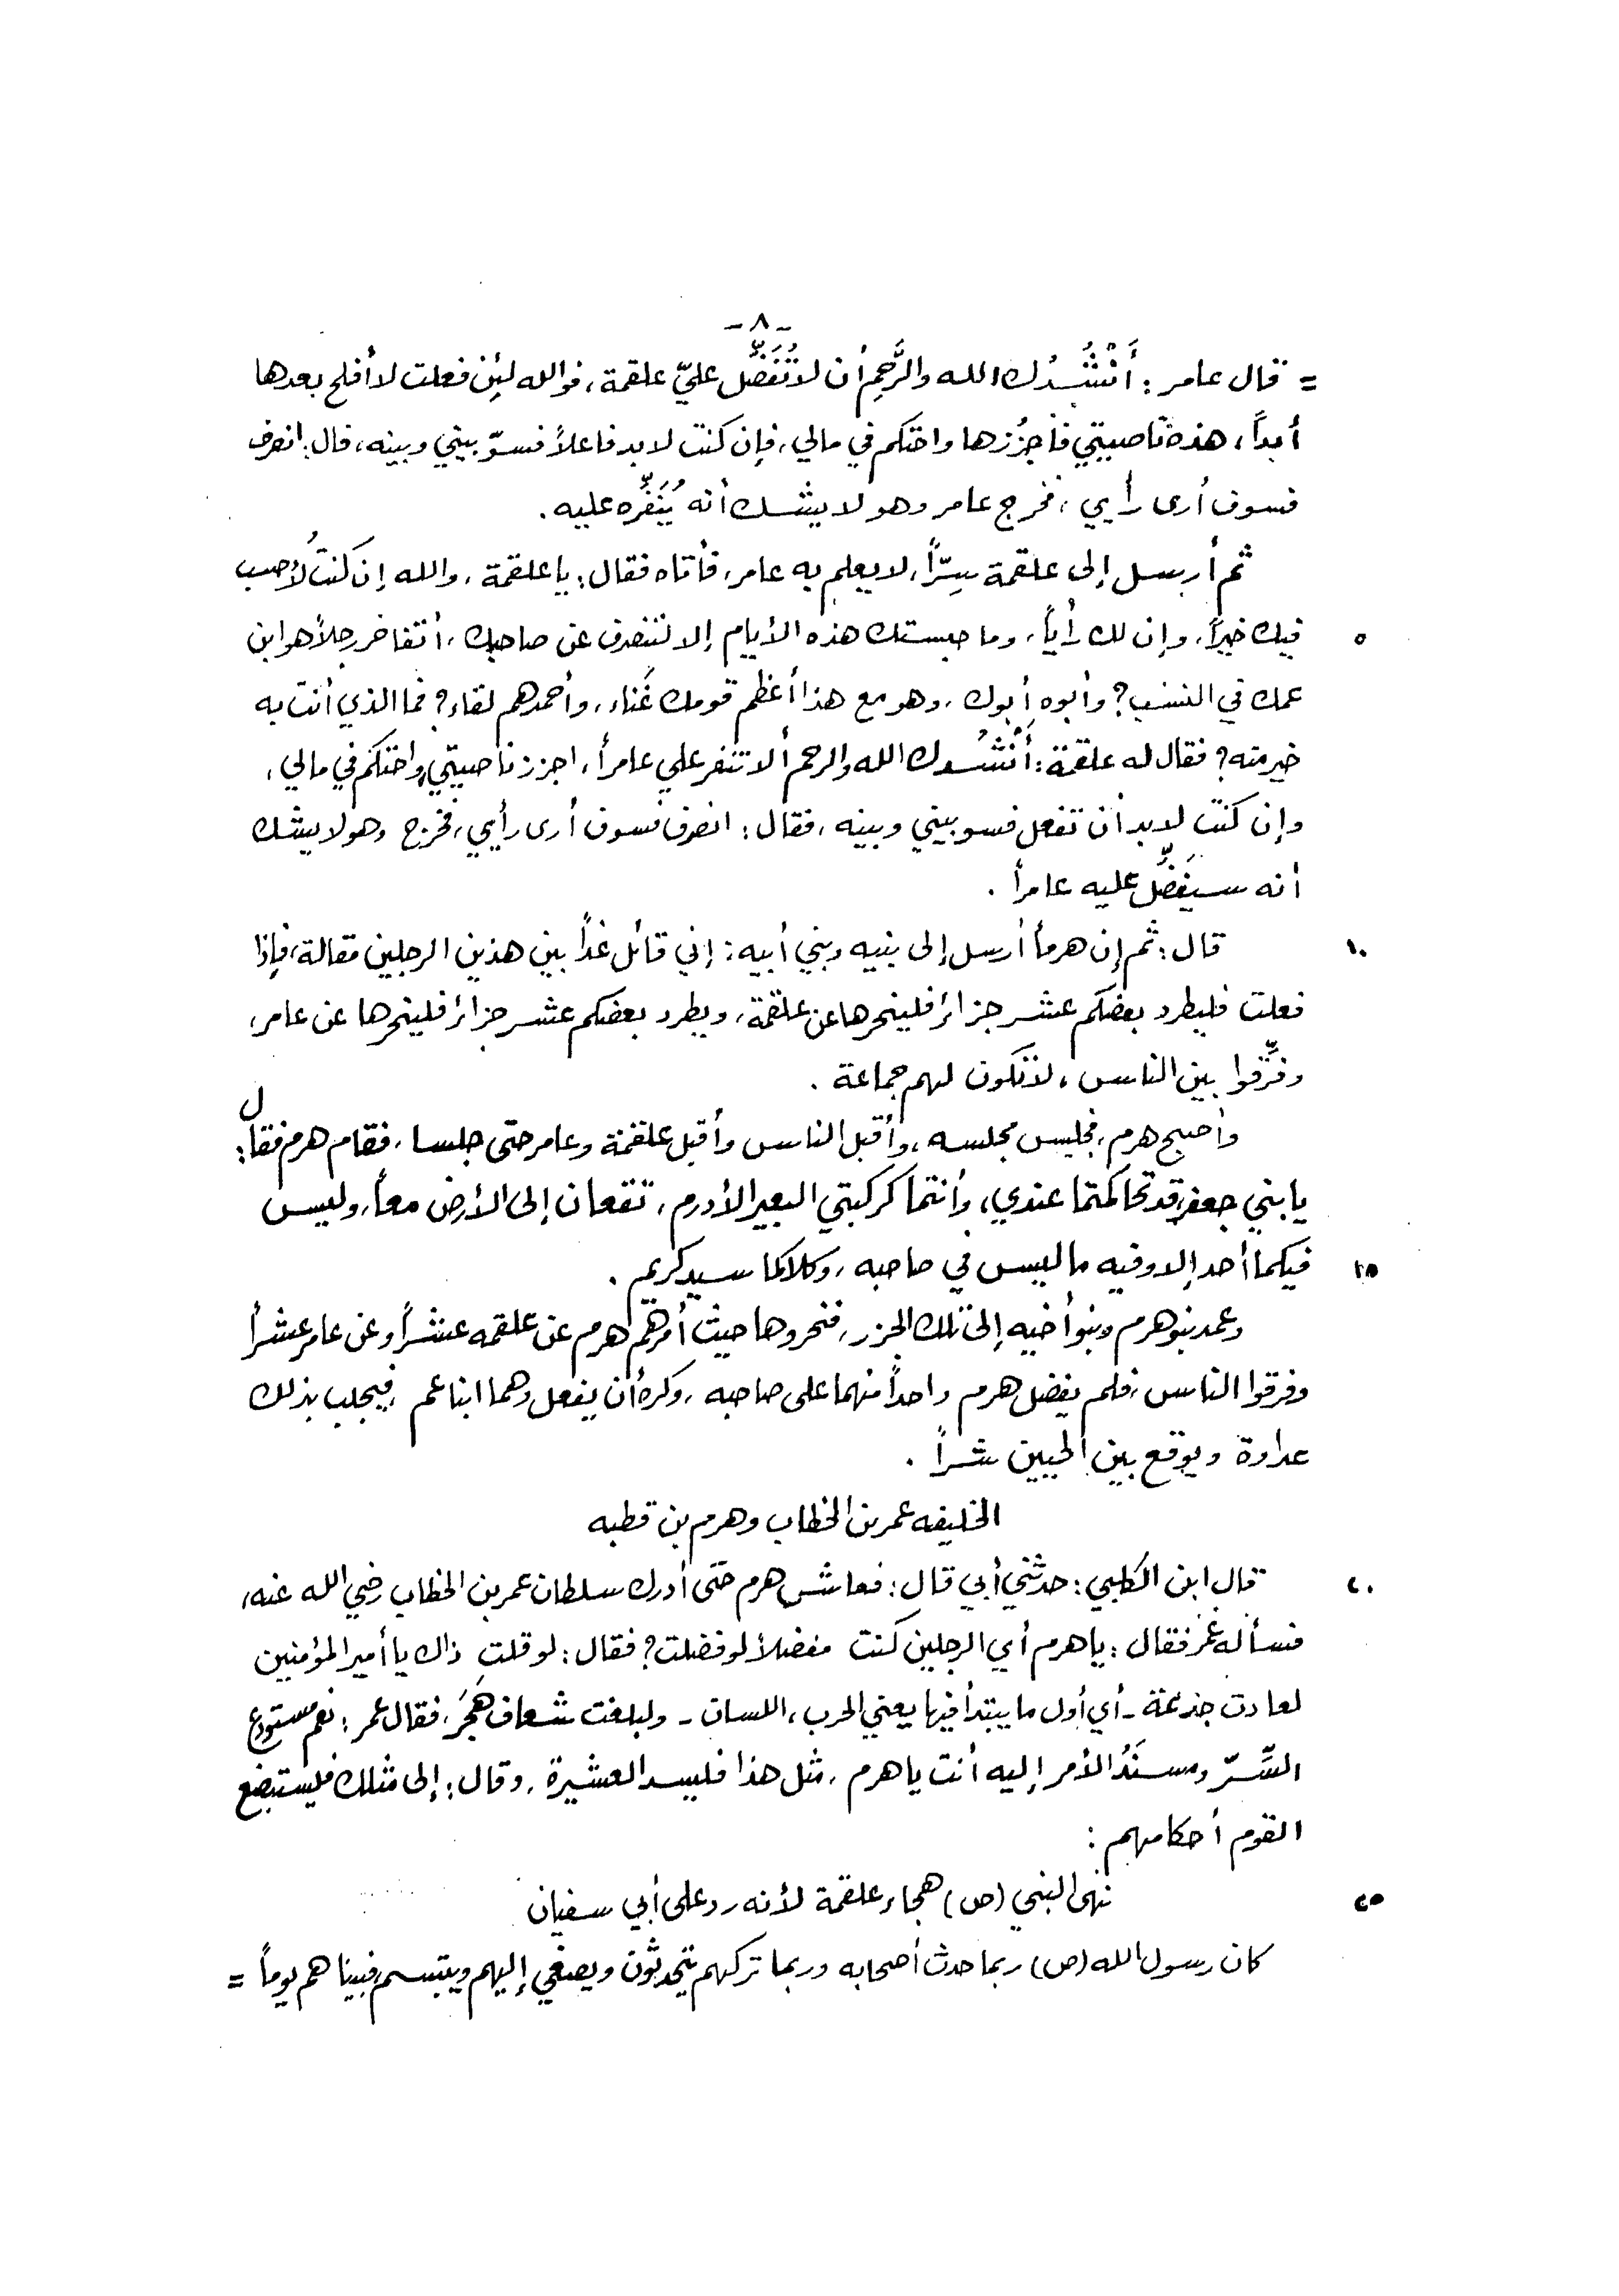 -٨-
= قال عامر : أَنْشُدُك الله والرَّحِم أن لا تُفَضِّل عليّ علقمة ، فوالله لئن فعلت لا أفلح بعدها
أبداً ، هذه ناصيتي فاجْزُزها واحتكم في مالي ، فإن كنتَ لا بد فاعلاً فسوّ بيني وبينه ، قال : انصرف
فسوف أرى رأيي ، فخرج عامر وهو لا يشك أنه يُنَفِّره عليه .
ثم أرسل إلى علقمة سِرّاً ، لا يعلم به عامر ، فأتاه فقال : يا علقمة ، والله إن كنتُ لأحسب
٥ فيك خيراً ، وإن لك رأياً ، وما حبستك هذه الأيام إلا لتنصرف عن صاحبك ، أتفاخر رجلاً هو ابن
عمك في النسب ؟ وأبوه أبوك ، وهو مع هذا أعظم قومك غَناء ، وأحمدهم لقاء ؟ فما الذي أنت به
خير منه ؟ فقال له علقمة : أَنْشُدك الله والرحم ألا تنفر علي عامراً ، اجزز ناصيتي واحتكم في مالي ،
وإن كنتَ لا بد أن تفعل فسو بيني وبينه ، فقال : انصرف فسوف أرى رأيي ، فخرج وهو لا يشك
أنه سيفَضِّل عليه عامراً .
١٠ قال : ثم إن هرماً أرسل إلى بنيه وبني أبيه : إني قائل غداً بين هذين الرجلين مقالة ، فإذا
فعلت فليطرد بعضكم عشر جزائر فلينحرها عن علقمة ، ويطرد بعضكم عشر جزائر فلينحرها عن عامر ،
وفَرِّقوا بين الناس ، لا تكون لهم جماعة .
وأصبح هرم ، فجلس مجلسه ، وأقبل الناس وأقبل علقمة وعامر حتى جلسا ، فقام هرم فقال :
يا بني جعفر قد تحاكمتما عندي ، وأنتما كركبتي البعير الأدرم ، تقعان إلى الأرض معاً ، وليس
١٥ فيكما أحد إلا وفيه ما ليس في صاحبه ، وكلاكما سيد كريم .
وعمد بنو هرم وبنو أخيه إلى تلك الجزر ، فنحروها حيث أمرهم هرم عن علقمه عشراً وعن عامر عشراً
وفرقوا الناس ، فلم يفضل هرم واحداً منهما على صاحبه ، وكره أن يفعل وهما ابنا عم ، فيجلب بذلك
عداوة ويوقع بين الحيين شراً .
الخليفه عمر بن الخطاب وهرم بن قطبه
٢٠ قال ابن الكلبي : حدثني أبي قال : فعاش هرم حتى أدرك سلطان عمر بن الخطاب رضي الله عنه ،
فسأله عمر فقال : يا هرم أي الرجلين كنت مفضلاً لو فضلت ؟ فقال : لو قلت ذاك يا أمير المؤمنين
لعادت جذعة - أي أول ما يبتدأ فيها يعني الحرب ، اللسان - ولبلغت شعاف هَجَرَ ، فقال عمر : نعم مستودع
السِّرّ ومسنَدُ الأمر إليه أنت يا هرم ، مثل هذا فليسد العشيرة ، وقال : إلى مثلك فليستبضع
القوم أحكامهم :
٢٥ نهى النبي (ص) هجاء علقمة لأنه رد على أبي سفيان
كان رسول الله (ص) ربما حدث أصحابه وربما تركهم يتحدثون ويصغي إليهم ويبتسم فبينا هم يوماً =